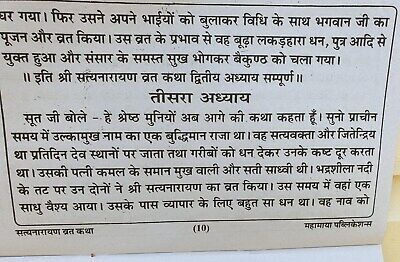 घर गया। फिर उसने अपने भाईयों को बुलाकर विधि के साथ भगवान जी का
पूजन और व्रत किया। उस व्रत के प्रभाव से वह बूढ़ा लकड़हारा धन, पुत्र आदि से
युक्त हुआ और संसार के समस्त सुख भोगकर बैकुण्ठ को चला गया।
॥ इति श्री सत्यनारायण व्रत कथा द्वितीय अध्याय सम्पूर्ण॥
तीसरा अध्याय
सूत जी बोले - हे श्रेष्ठ मुनियों अब आगे की कथा कहता हूँ। सुनो प्राचीन
समय में उल्कामुख नाम का एक बुद्धिमान राजा था। वह सत्यवक्ता और जितेन्द्रिय
था प्रतिदिन देव स्थानों पर जाता तथा गरीबों को धन देकर उनके कष्ट दूर करता
था। उसकी पत्नी कमल के समान मुख वाली और सती साध्वी थी। भद्रशीला नदी
के तट पर उन दोनों ने श्री सत्यनारायण का व्रत किया। उस समय में वहां एक
साधु वैश्य आया। उसके पास व्यापार के लिए बहुत सा धन था। वह नाव को
सत्यनारायण व्रत कथा (10) महामाया पब्लिकेशन्स